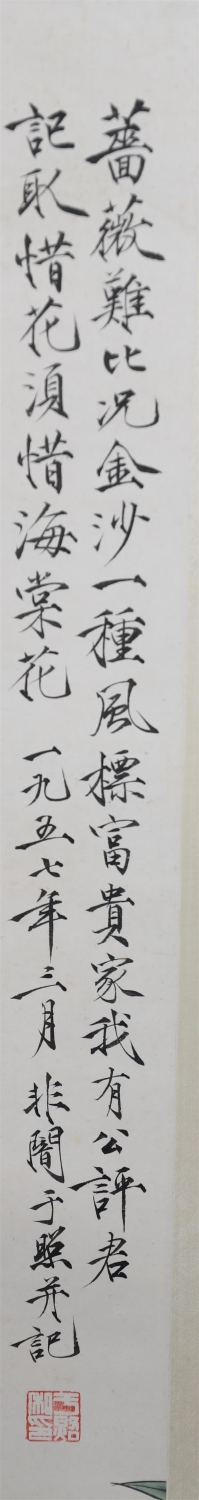 薔薇難比况金沙一種風標富貴家我有公評君
記取惜花須惜海棠花 一九五七年三月 非闇于照并記
于照私印